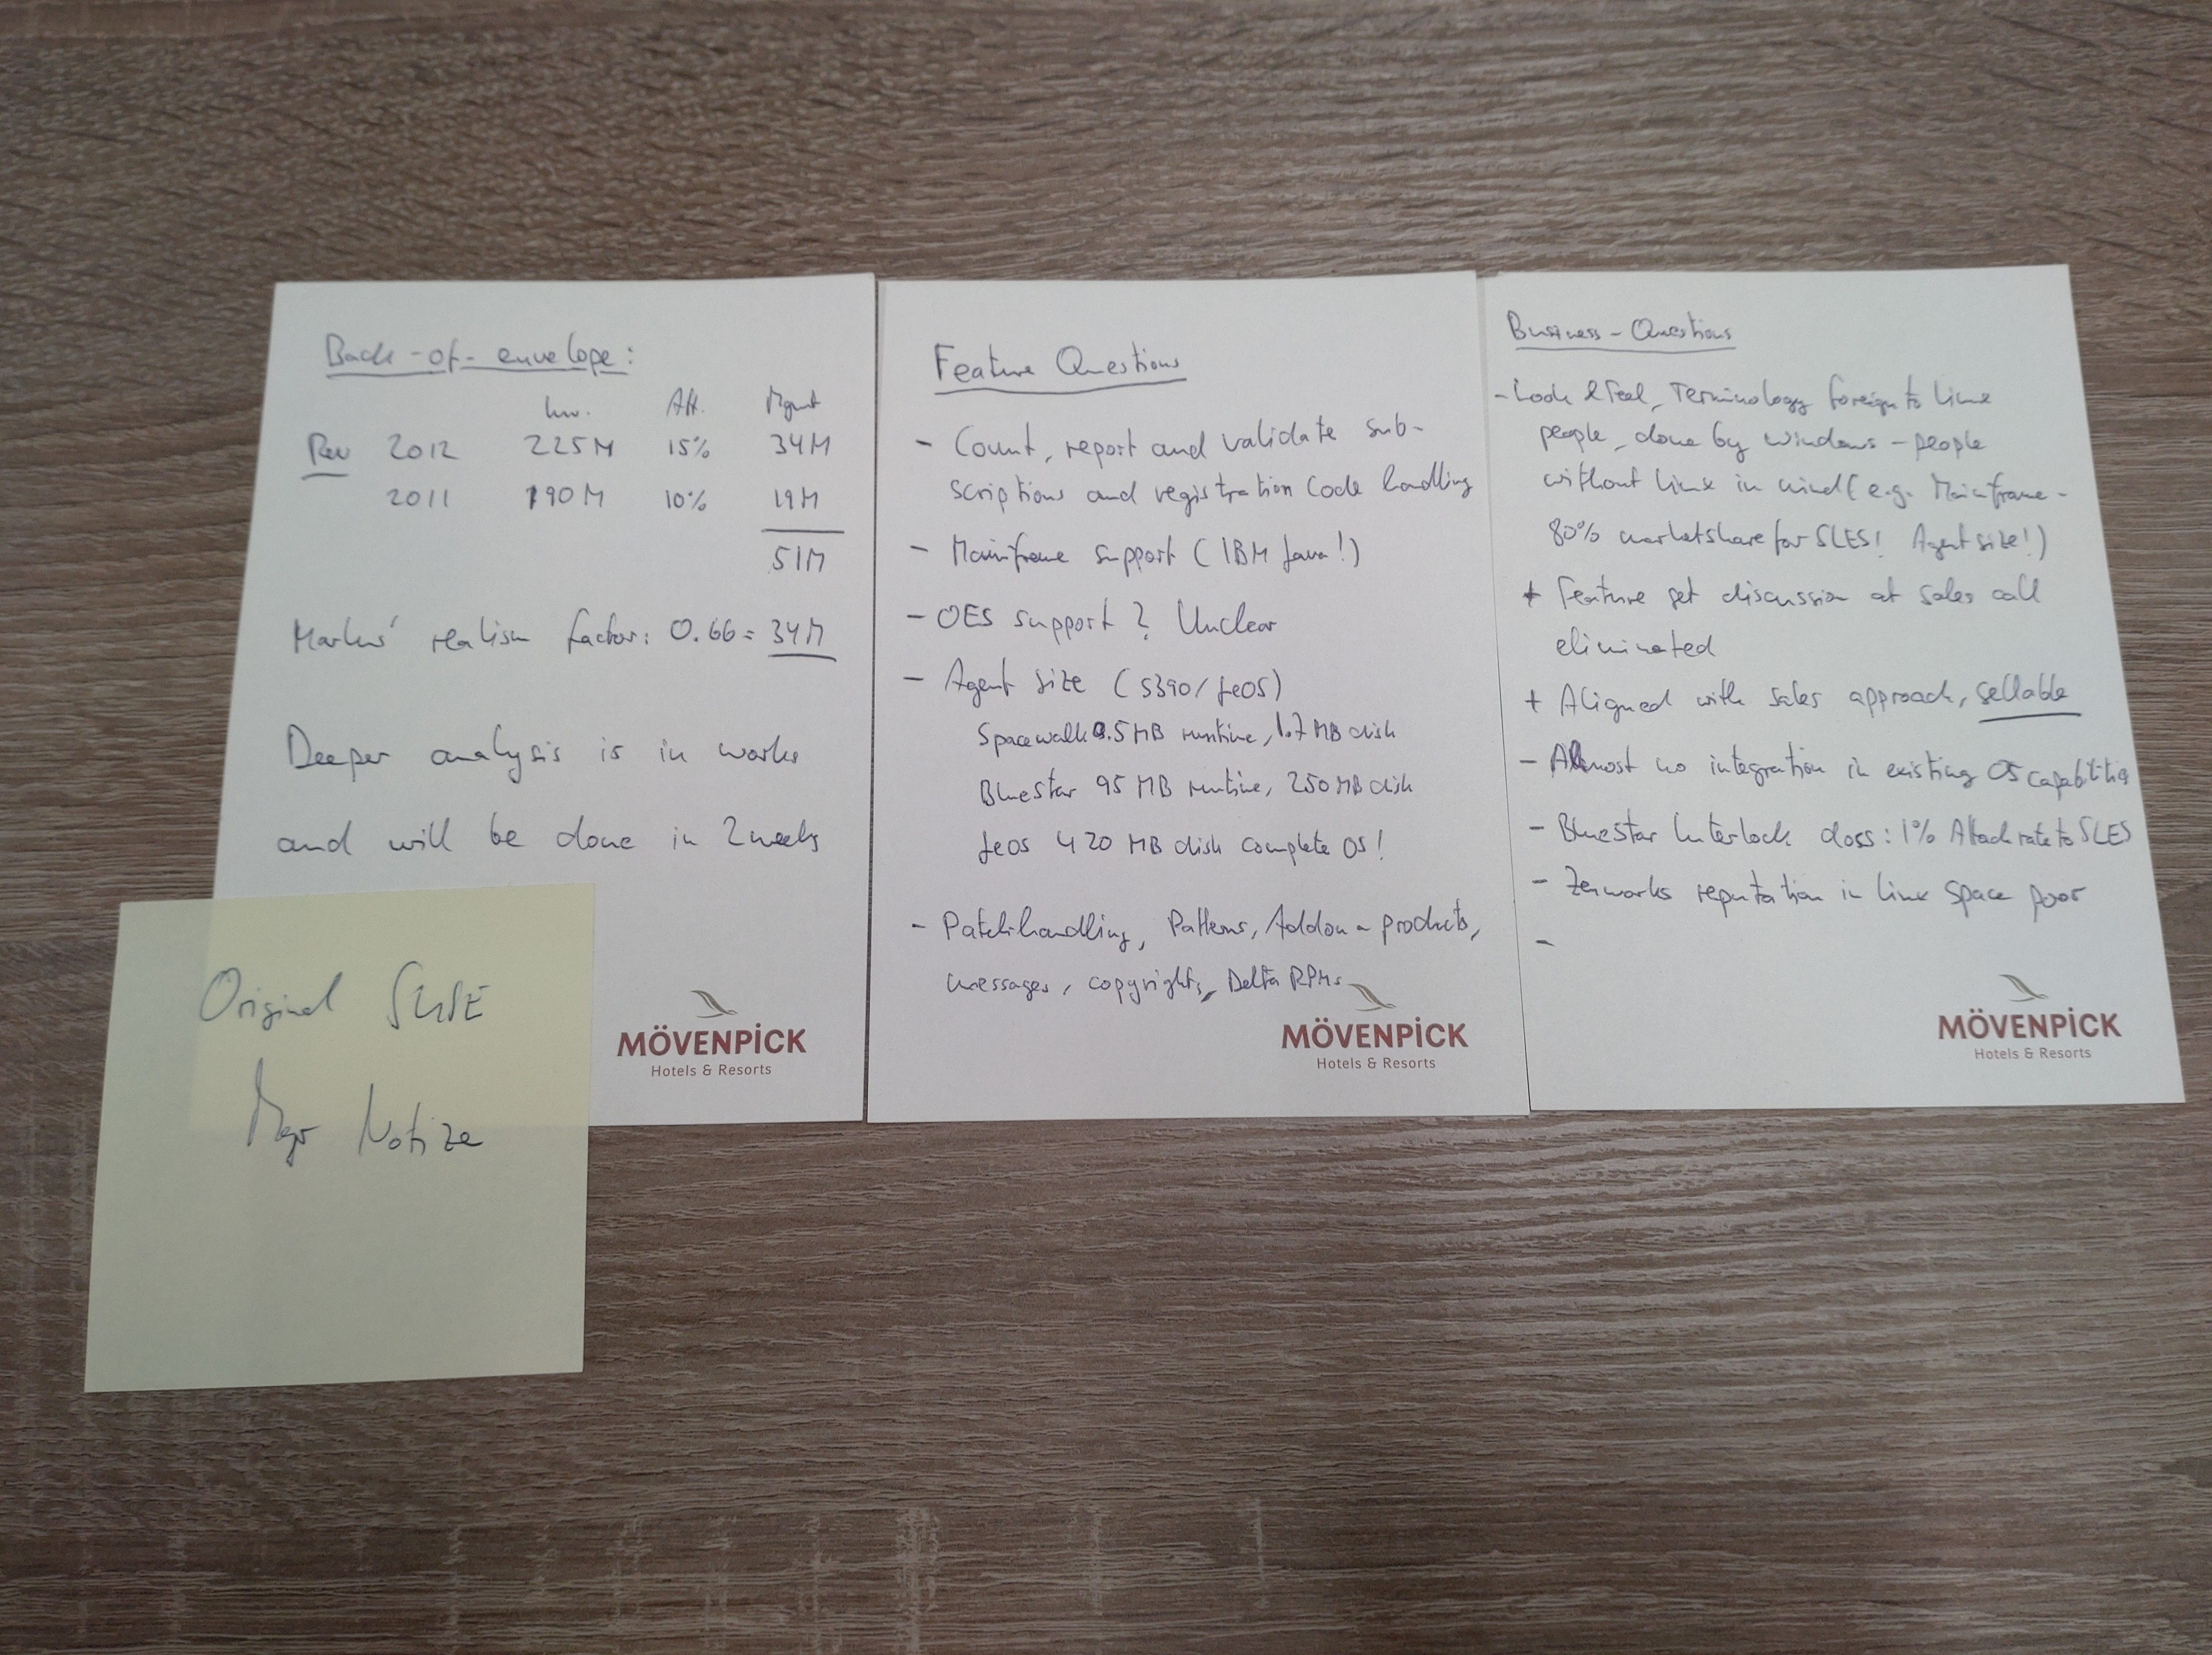 Back-of-envelope:
Inv. Att. Mgmt
Rev 2012 225M 15% 34M
2011 190M 10% 19M
51M
Markus' realism factor: 0.66 = 34M
Deeper analysis is in works
and will be done in 2 weeks
Original SUSE
Mgr Notize
MÖVENPICK
Hotels & Resorts
Feature Questions
- Count, report and validate sub-
scriptions and registration code handling
- Mainframe support (IBM Java!)
- OES support? Unclear
- Agent size (S390/JeOS)
Spacewalk 9.5 MB runtime, 1.7 MB disk
BlueStar 95 MB runtime, 250 MB disk
JeOS 420 MB disk complete OS!
- Patchhandling, Patterns, Addon-products,
messages, copyrights, Delta RPMs
MÖVENPICK
Hotels & Resorts
Business-Questions
- Look & Feel, Terminology foreign to Linux
people, done by Windows-people
without Linux in mind (e.g. Mainframe -
80% marketshare for SLES! Agent size!)
+ Feature set discussion at sales call
eliminated
+ Aligned with sales approach, sellable
- Almost no integration in existing OS capabilities
- BlueStar Interlock does: 1% Attach rate to SLES
- Zenworks reputation in Linux space poor
-
MÖVENPICK
Hotels & Resorts